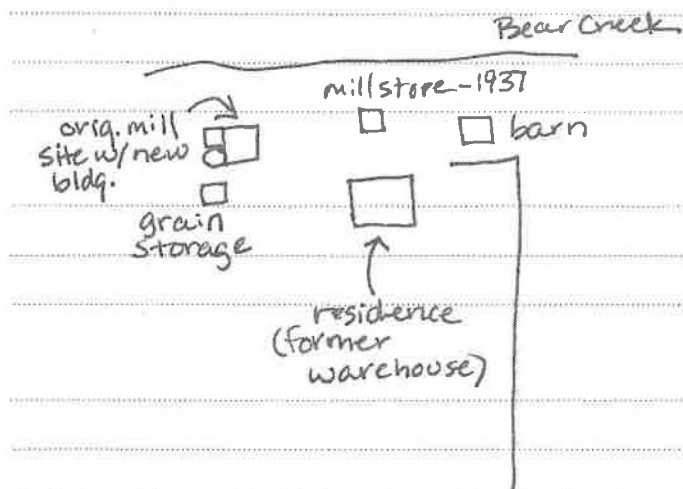 Bear Creek
mill store - 1937
orig. mill
site w/ new
bldg.
barn
grain
storage
residence
(former
warehouse)